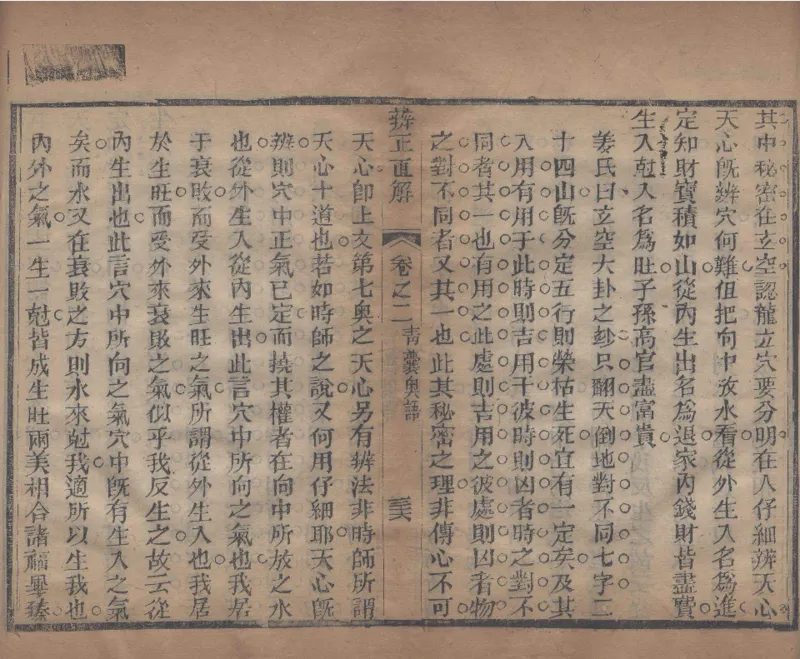 其中秘密在玄空認龍立穴要分明在人仔細辨天心
天心旣辨穴何難但把向中放水看從外生入名爲進
定知財寳積如山從內生出名爲退家內錢財皆盡費
生入尅入名爲旺子孫高官盡富貴
姜氏曰玄空大卦之玅只翻天倒地對不同七字二
十四山旣分定五行則榮枯生死宜有一定矣及其
入用有用于此時則吉用于彼時則凶者時之對不
同者其一也有用之此處則吉用之彼處則凶者物
之對不同者又其一也此其秘密之理非傳心不可
辨正直解
卷之二
靑囊奥語
天心卽上文第七奥之天心另有辨法非時師所謂
天心十道也若如時師之說又何用仔細耶天心旣
辨則穴中正氣已定而撓其權者在向中所放之水
也從外生入從內生出此言穴中所向之氣也我居
于衰敗而受外來生旺之氣所謂從外生入也我居
於生旺而受外來衰敗之氣似乎我反生之故云從
內生出也此言穴中所向之氣穴中旣有生入之氣
矣而水又在衰敗之方則水來尅我適所以生我也
內外之氣一生一尅皆成生旺兩美相合諸福畢臻